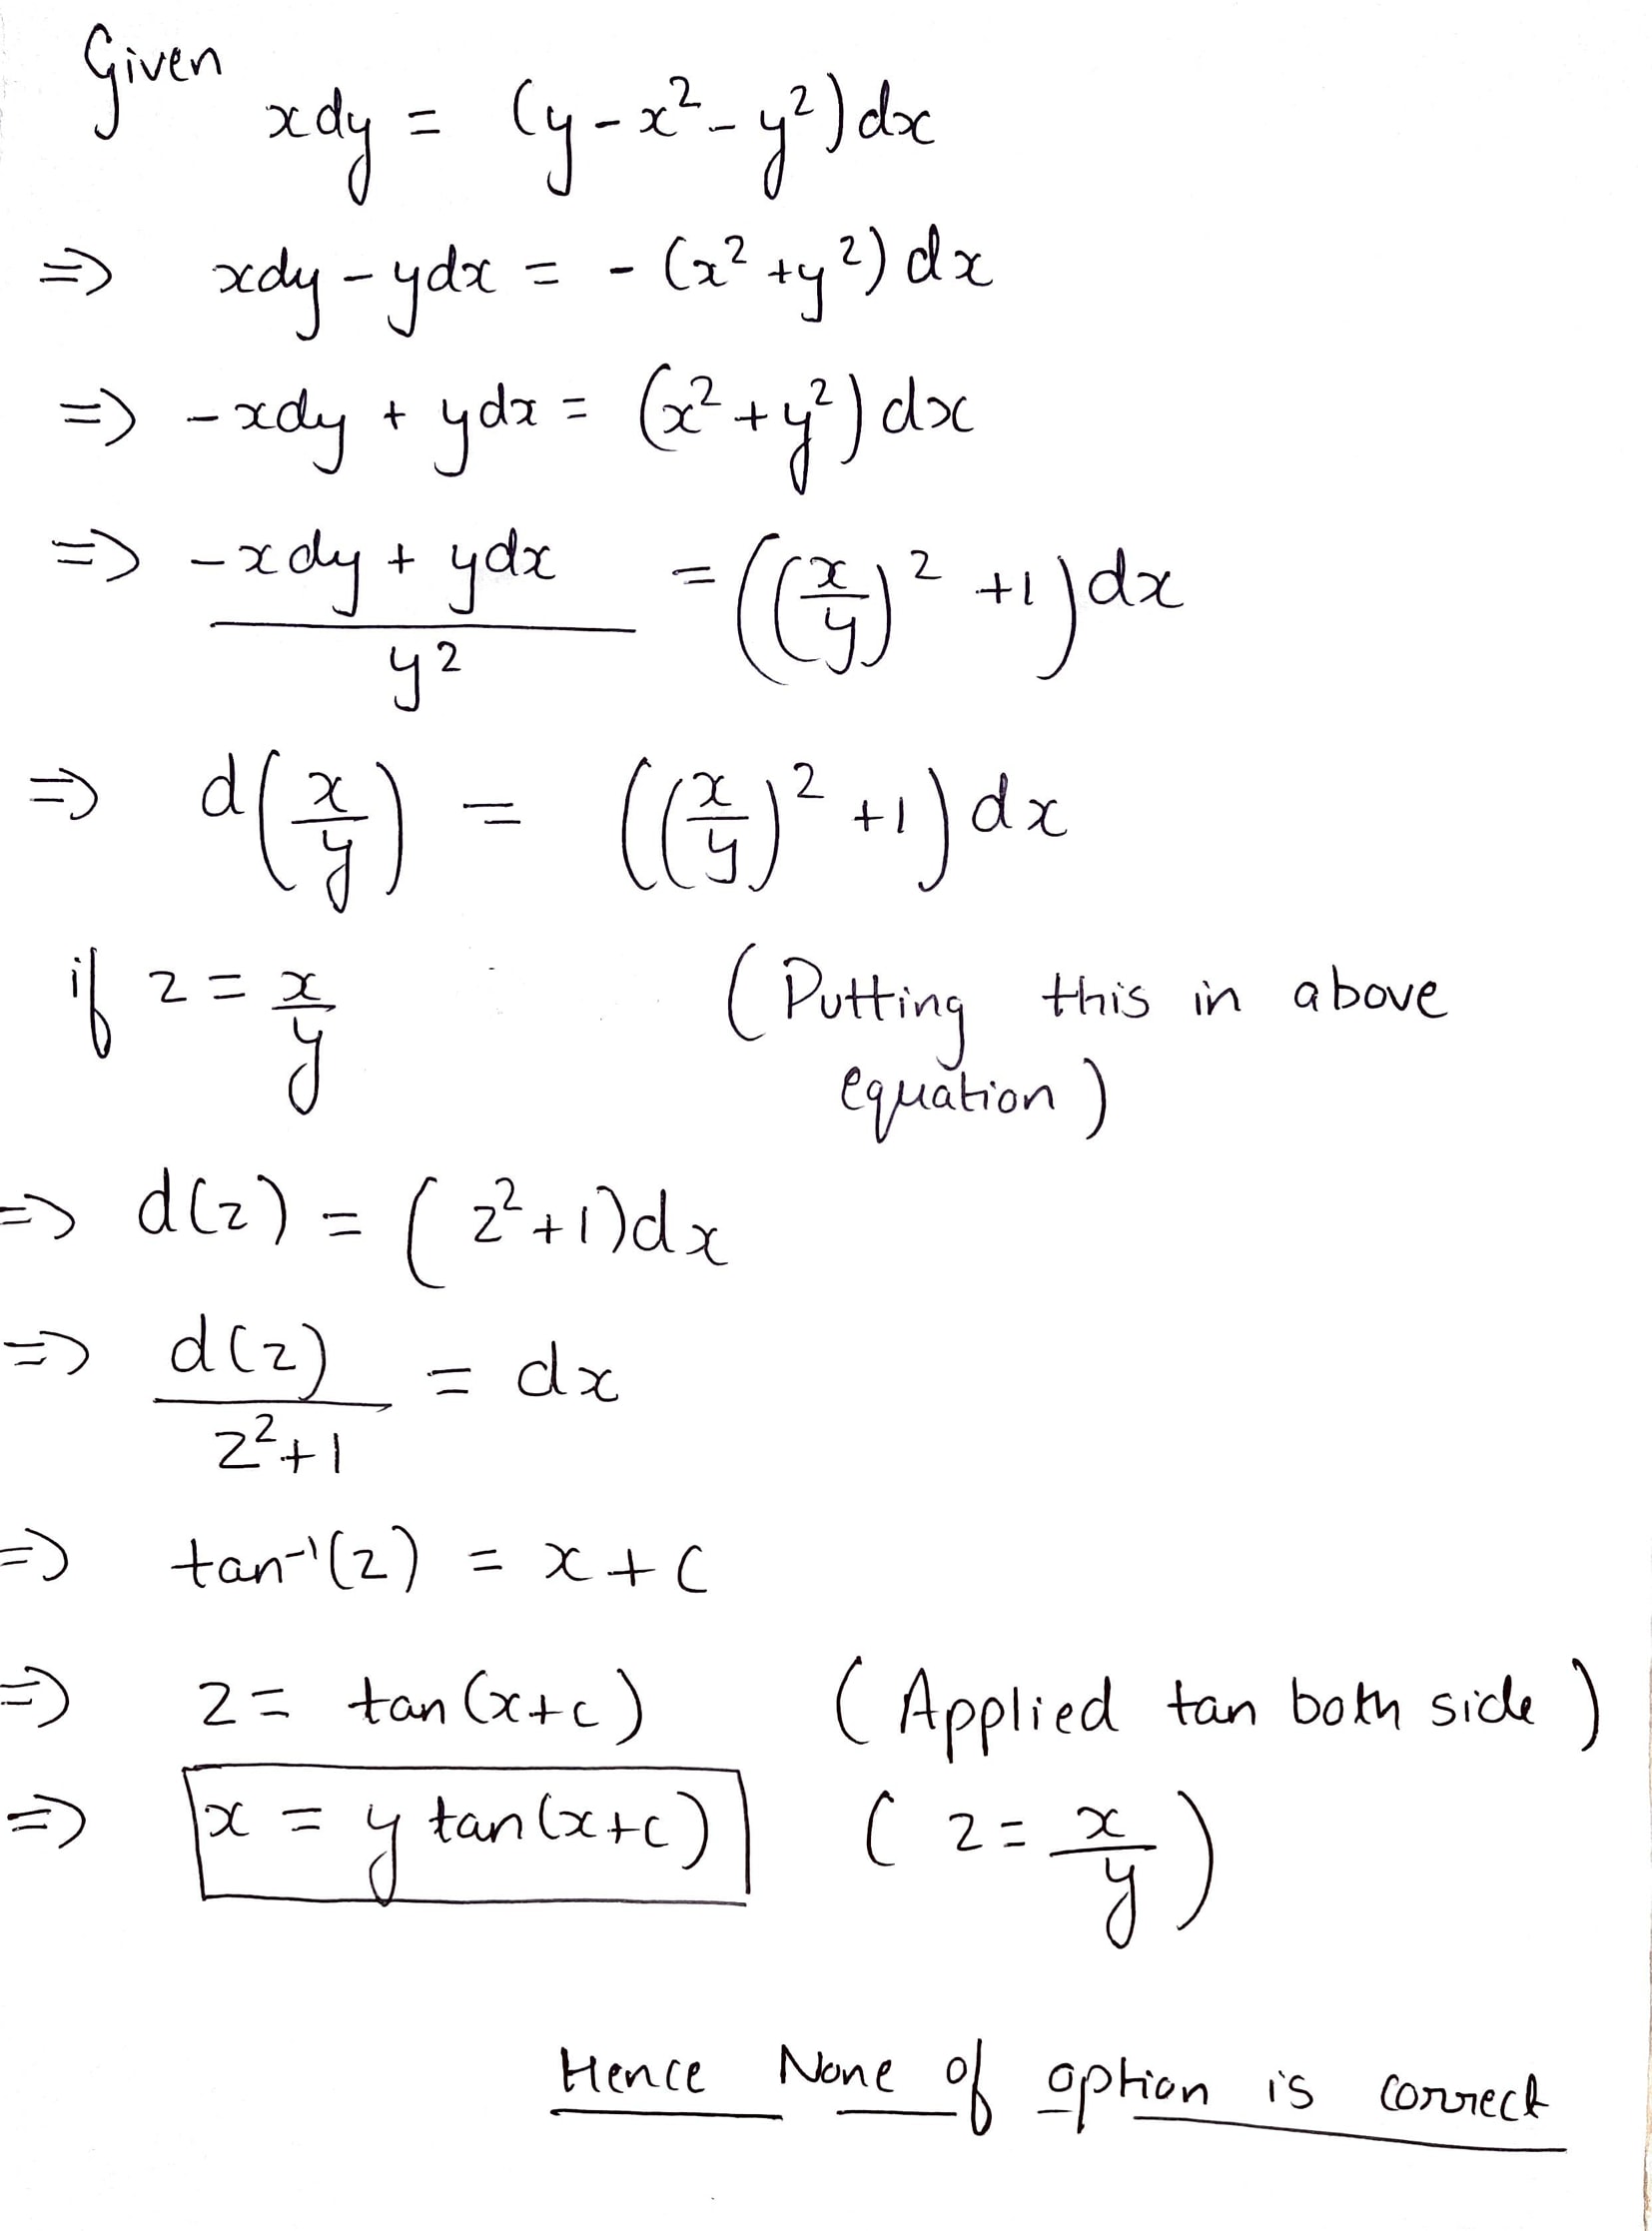 Given
xdy = (y - x² - y²) dx
=> xdy - ydx = - (x² + y²) dx
=> - xdy + ydx = (x² + y²) dx
=> (- xdy + ydx) / y² = ((x/y)² + 1) dx
=> d(x/y) = ((x/y)² + 1) dx
if z = x/y (Putting this in above
equation)
=> d(z) = (z² + 1) dx
=> d(z) / (z² + 1) = dx
=> tan⁻¹(z) = x + c
=> z = tan(x + c) (Applied tan both side)
=> x = y tan(x + c) (z = x/y)
Hence None of option is correct